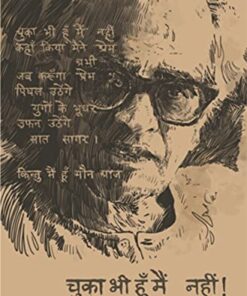 चुका भी हूँ मैं नहीं
कहाँ किया मैंने प्रेम
अभी
जब करूँगा प्रेम
पिघल उठेंगे
युगों के भूधर
उफन उठेंगे
सात सागर ।
किन्तु मैं हूँ मौन आज
चुका भी हूँ मैं नहीं !